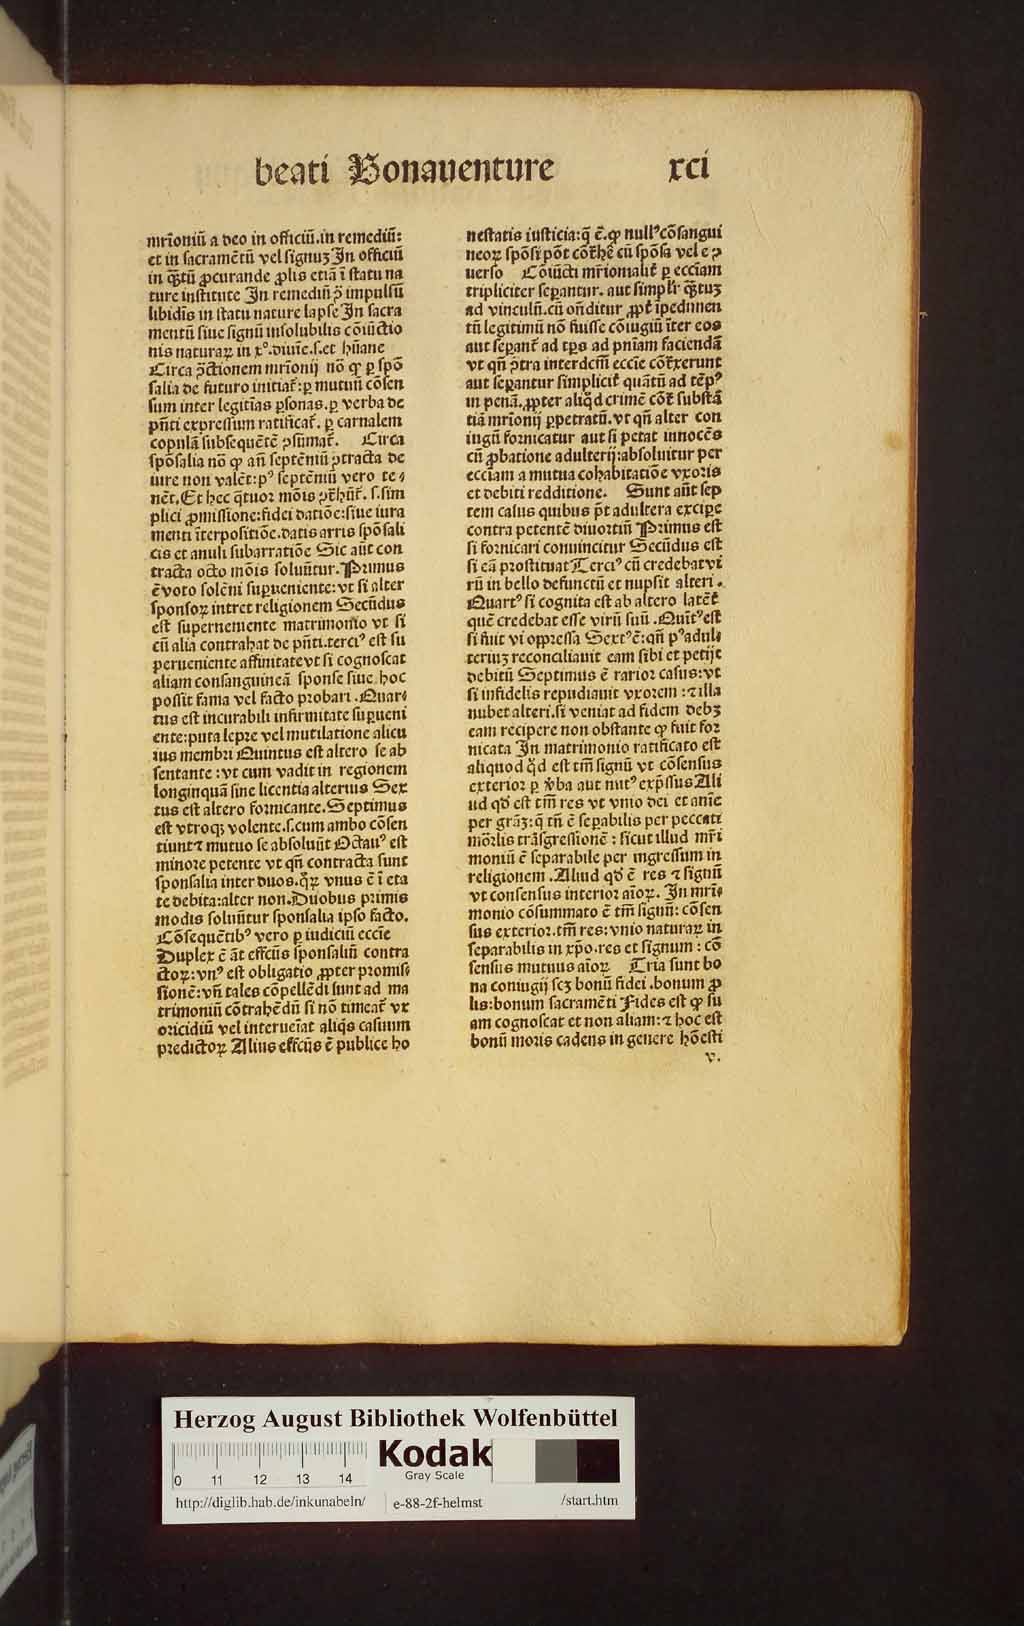 beati Bonauenture xci
mr̄ioniū a deo in officiū.in remediū:
et in sacramētū vel signuʒ In officiū
in qȝtū ꝓcurande ꝓlis etiā ī statu na
ture institute In remediū ꝓ impulsū
libidīs in statu nature lapse In sacra
mentū siue signū insolubilis cōiūctio
nis naturaꝝ in xº.diuīe.s.et hūane
Circa ꝯctionem mr̄ionij nō ꝙ ꝑ spō
salia de futuro initiaī:ꝑ mutuū cōsen
sum inter legitīas ꝑsonas.ꝑ verba de
pn̄ti expressum ratificaī. ꝑ carnalem
copulā subsequētē ꝯsūmaī. Circa
spōsalia nō ꝙ an̄ septēniū ꝯtracta de
iure non valēt:pꝰ septēniū vero te⸗
nēt.Et hec q̄tuor mōis s.sim
plici ꝓmissione:fidei datiōe:siue iura
menti īterpositiōe.datis arris spōsali
cis et anuli subarratiōe Sic aūt con
tracta octo mōis soluūtur.Primus
ē voto solēni suꝑueniente:vt si alter
sponsoꝝ intret religionem Secūdus
est superueniente matrimonio vt si
cū alia contrahat de pn̄ti.terciꝰ est su
perueniente affinitate vt si cognoscat
aliam consanguineā sponse siue hoc
possit fama vel facto probari .Quar⸗
tus est incurabili infirmitate suꝑueni
ente:puta lepre vel mutilatione alicu
ius membri Quintus est altero se ab
sentante :vt cum vadit in regionem
longinquā sine licentia alterius Sex
tus est altero fornicante.Septimus
est vtroqȝ volente.s.cum ambo cōsen
tiunt ⁊ mutuo se absoluūt Octauꝰ est
minore petente vt qn̄ contracta sunt
sponsalia inter duos.q̄ꝝ vnus ē ī eta
te debita:alter non.Duobus primis
modis soluūtur sponsalia ipso facto.
Cōsequētibꝰ vero ꝑ iudiciū eccīe
Duplex ē āt effcūs sponsaliū contra
ctoꝝ:vnꝰ est obligatio ꝓpter promis⸗
sionē:vn̄ tales cōpellēdi sunt ad ma
trimoniū cōtrahēdū si nō timeaī vx
oricidiū vel interueīat aliq̄s casuum
predictoꝝ Alius effcūs ē publice ho
nestatis iusticia:q̄ ē.ꝙ nullꝰ cōsangui
neoꝝ spōsi pōt cōt̄hē cū spōsa vel e ꝯ
uerso Cōiūcti mr̄ionialiī ꝑ ecciam
tripliciter seꝑantur. aut simplr̄ qȝtuʒ
ad vinculū.cū on̄ditur ꝓpt̄ īpedimen
tū legitimū nō fuisse cōiugiū īter eos
aut seꝑanī ad tp̄s ad pniam faciendā
vt qn̄ ꝯtra interdcm̄ eccie cōt̄xerunt
aut seꝑantur simpliciī quātū ad tēpꝰ
in penā.ꝓpter aliq̄d crimē cōī substā
tiā mr̄ionij ꝑpetratū.vt qn̄ alter con
iugū fornicatur aut si petat innocēs
cū ꝓbatione adulterij:absoluitur per
ecciam a mutua cohabitatiōe vxoris
et debiti redditione. Sunt aūt sep
tem casus quibus pt̄ adultera exciꝑe
contra petentē diuortiū Primus est
si fornicari conuincitur Secūdus est
si eā prostituat Terciꝰ cū credebat vi
rū in bello defunctū et nupsit alteri .
Quartꝰ si cognita est ab altero latēī
quē credebat esse virū suū .Quītꝰ est
si fuit vi oppressa Sextꝰ ē:qn̄ pꝰ adul⸗
teriuʒ reconciliauit eam sibi et petijt
debitū Septimus ē rarior casus:vt
si infidelis repudiauit vxorem :⁊ illa
nubet alteri.si veniat ad fidem debʒ
eam recipere non obstante ꝙ fuit for
nicata In matrimonio ratificato est
aliquod q̄d est tm̄ signū vt cōsensus
exterior ꝑ v̄ba aut nutꝰ exp̄ssus Ali
ud qd̄ est tm̄ res vt vnio dei et anīe
per grāʒ:q̄ tn̄ ē seꝑabilis per peccati
mōrlis trāsgressionē : sicut illud mr̄i
moniū ē separabile per ingressum in
religionem .Aliud qd̄ ē res ⁊ signū
vt consensus interior aīoꝝ. In mr̄i⸗
monio cōsummato ē tm̄ signū: cōsen
sus exterior.tm̄ res:vnio naturaꝝ in
separabilis in xp̄o.res et signum : cō
sensus mutuus aīoꝝ Tria sunt bo
na coniugij scʒ bonū fidei .bonum ꝓ
lis:bonum sacramēti Fides est ꝙ su
am cognoscat et non aliam:⁊ hoc est
bonū moris cadens in genere hōesti
v.
Herzog August Bibliothek Wolfenbüttel
Kodak
Gray Scale
0 11 12 13 14
http://diglib.hab.de/inkunabeln/ e-88-2f-helmst /start.htm